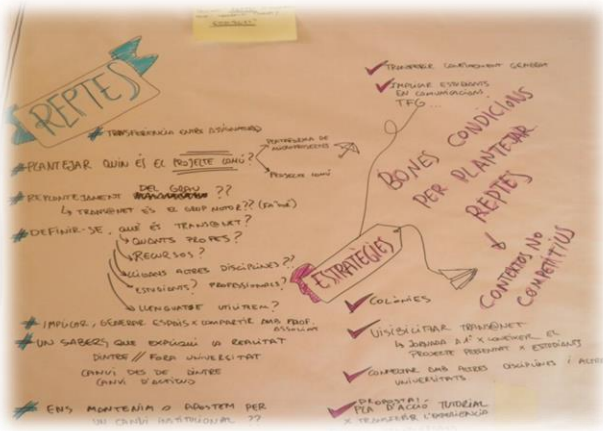 REPTES
# TRANSFERÈNCIA ENTRE ASSIGNATURES
# PLANTEJAR QUIN ÉS EL PROJECTE COMÚ?
PLATAFORMA DE
MICROPROJECTES
PROJECTE COMÚ
# REPLANTEJAMENT DEL GRAU ??
↳ TRANS@NET ÉS EL GRUP MOTOR??
# DEFINIR-SE, QUÈ ÉS TRANS@NET?
QUANTS PROFES?
RECURSOS?
ALTRES DISCIPLINES??
ESTUDIANTS? PROFESSIONALS?
LLENGUATGE UTILITZEM?
# IMPLICAR, GENERAR ESPAIS X COMPARTIR AMB PROF.
ASSOCIAT
# UN SABERS QUE EXPLIQUI LA REALITAT
DINTRE // FORA UNIVERSITAT
CANVI DES DE DINTRE
CANVI D'ACTITUD
# ENS MANTENIM O APOSTEM PER
UN CANVI INSTITUCIONAL ??
ESTRATÈGIES
✓ TRANSFERIR CONEIXEMENT GENERAT
✓ IMPLICAR ESTUDIANTS
EN COMUNICACIONS
TFG...
BONES CONDICIONS
PER PLANTEJAR
REPTES
↓
CONTEXTOS NO
COMPETITIUS
✓ COLÒNIES
✓ VISIBILITZAR TRANS@NET
↳ JORNADA X CONÈIXER EL
PROJECTE X ESTUDIANTS
✓ CONNECTAR AMB ALTRES DISCIPLINES I ALTRES
UNIVERSITATS
✓ PROPOSTA:
PLA D'ACCIÓ TUTORIAL
X TRANSFERIR L'EXPERIÈNCIA